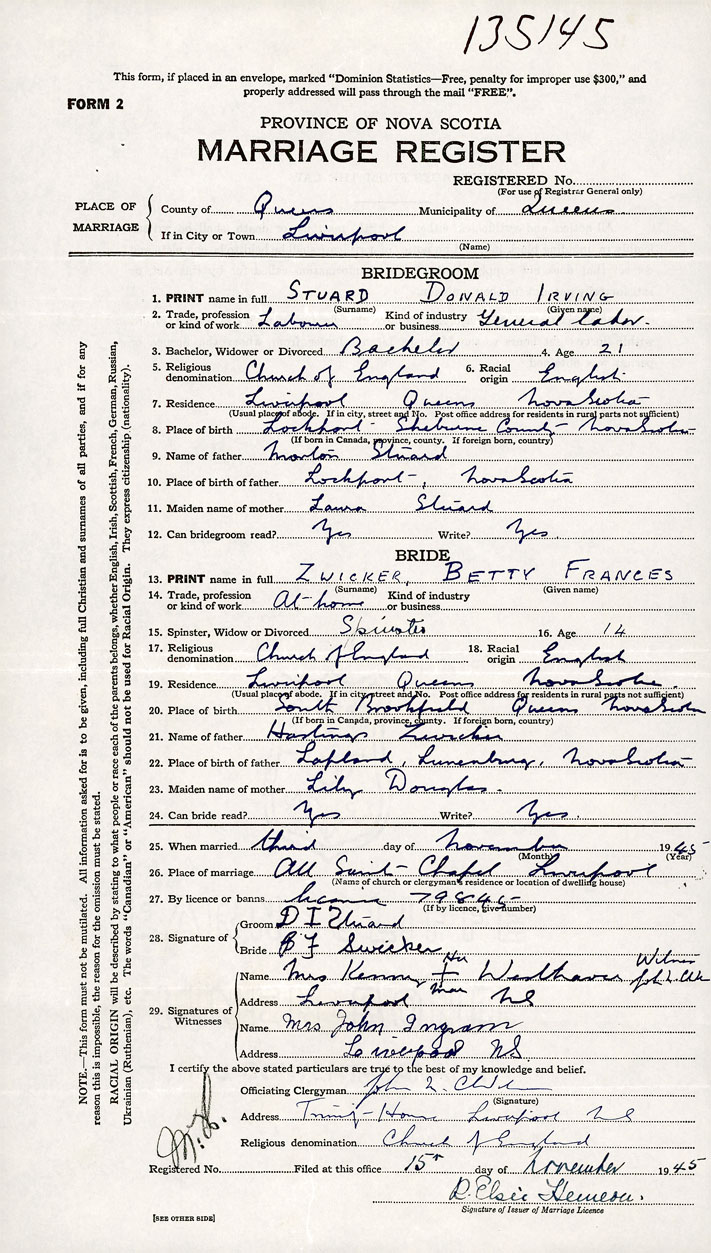 135145
This form, if placed in an envelope, marked "Dominion Statistics—Free, penalty for improper use $300," and
properly addressed will pass through the mail "FREE".
FORM 2
PROVINCE OF NOVA SCOTIA
MARRIAGE REGISTER
REGISTERED No.
(For use of Registrar General only)
PLACE OF MARRIAGE
County of Queens Municipality of Queens
If in City or Town Liverpool
(Name)
BRIDEGROOM
1. PRINT name in full STUARD DONALD IRVING
(Surname) (Given name)
2. Trade, profession or kind of work Labourer Kind of industry or business General labor.
3. Bachelor, Widower or Divorced Bachelor 4. Age 21
5. Religious denomination Church of England 6. Racial origin English
7. Residence Liverpool Queens Nova Scotia
(Usual place of abode. If in city, street and No. Post office address for residents in rural parts not sufficient)
8. Place of birth Lockport Shelburne County Nova Scotia
(If born in Canada, province, county. If foreign born, country)
9. Name of father Morton Stuard
10. Place of birth of father Lockport, Nova Scotia
11. Maiden name of mother Laura Stuard
12. Can bridegroom read? Yes Write? Yes.
BRIDE
13. PRINT name in full ZWICKER, BETTY FRANCES
(Surname) (Given name)
14. Trade, profession or kind of work At home Kind of industry or business
15. Spinster, Widow or Divorced Spinster 16. Age 14
17. Religious denomination Church of England 18. Racial origin English
19. Residence Liverpool Queens Nova Scotia.
(Usual place of abode. If in city street and No. Post office address for residents in rural parts not sufficient)
20. Place of birth South Brookfield Queens Nova Scotia
(If born in Canada, province, county. If foreign born, country)
21. Name of father Hastings Zwicker
22. Place of birth of father Lapland, Lunenburg, Nova Scotia
23. Maiden name of mother Lily Douglas.
24. Can bride read? Yes Write? Yes.
25. When married third day of November 1945
(Month) (Year)
26. Place of marriage All Saint Chapel Liverpool
(Name of church or clergyman's residence or location of dwelling house)
27. By licence or banns licence 79846
(If by licence, give number)
28. Signature of Groom D I Stuard
Bride B F Swicker
29. Signatures of Witnesses
Name Mrs Kenny Her + Mark Witness
Address Liverpool NS
Name Mrs John Ingram
Address Liverpool NS.
I certify the above stated particulars are true to the best of my knowledge and belief.
Officiating Clergyman John
(Signature)
Address Liverpool NS
Religious denomination Church of England
Registered No. Filed at this office 15th day of November 1945
R. Elsie Hemeon.
Signature of Issuer of Marriage Licence
[SEE OTHER SIDE]
NOTE.—This form must not be mutilated. All information asked for is to be given, including full Christian and surnames of all parties, and if for any
reason this is impossible, the reason for the omission must be stated.
RACIAL ORIGIN will be described by stating to what people or race each of the parents belongs, whether English, Irish, Scottish, French, German, Russian,
Ukrainian (Ruthenian), etc. The words "Canadian" or "American" should not be used for Racial Origin. They express citizenship (nationality).